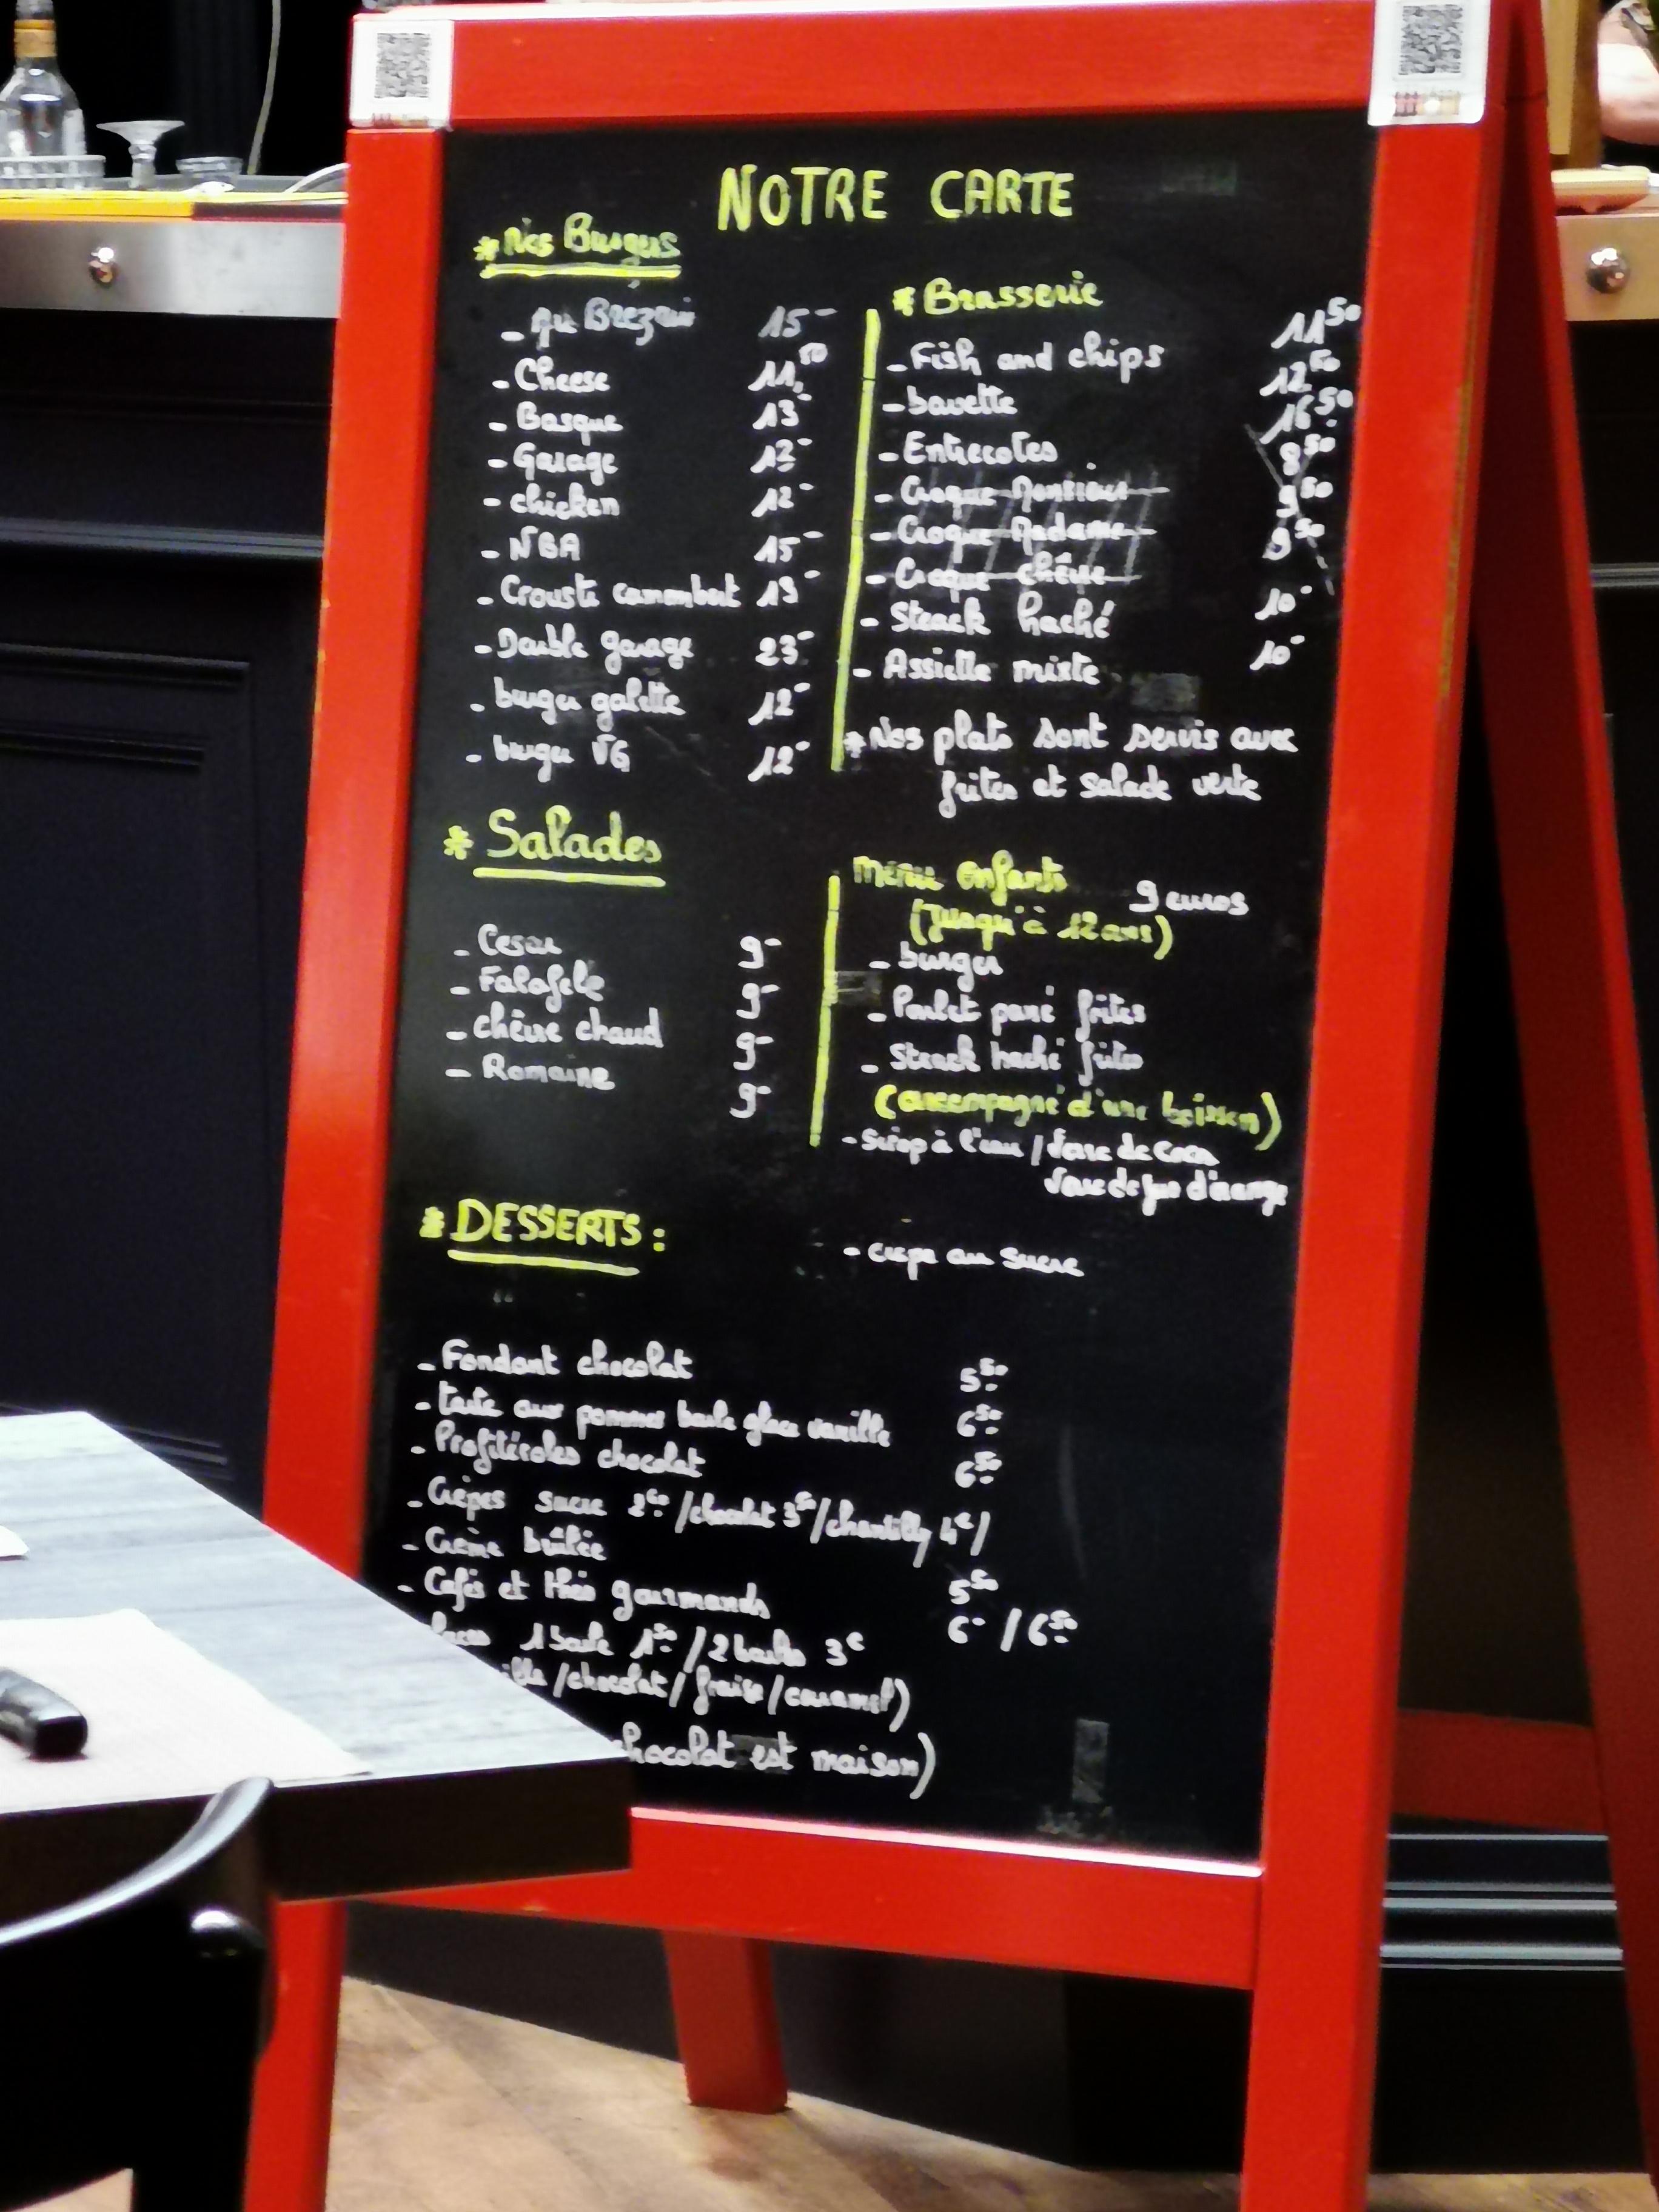 NOTRE CARTE
* Nos Burgers
- Au 15-
- Cheese 11,50
- Basque 13-
- Garage 12-
- chicken 12-
- NBA 15-
- Crousti camembert 13-
- Double garage 23-
- burger galette 12-
- burger VG 12-
* Brasserie
- Fish and chips 11 50
- bavette 12 50
- Entrecotes 16 50
- Croque Monsieur 8 50
- Croque Madame 9 50
- Croque chèvre 9 50
- Steack haché 10-
- Assiette mixte 10-
* Nos plats sont servis avec
frites et salade verte
* Salades
- Cesar 9-
- Falafele 9-
- chèvre chaud 9-
- Romaine 9-
Menu enfants 9 euros
(Jusqu'à 12 ans)
- burger
- Poulet pané frites
- Steack haché frites
(accompagné d'une boisson)
- Sirop à l'eau / Verre de coca
Verre de jus d'orange
- crepe au sucre
* DESSERTS :
- Fondant chocolat 5 50
- tarte aux pommes boule glace vanille 6 50
- Profiteroles chocolat 6 50
- Crèpes sucre 2 /chocolat 3 50/chantilly 4€/
- Crème brûlée 5 50
- Cafés et thés gourmands 6- / 6 50
1 boule 1 50 / 2 boules 3€
/chocolat/ fraise/caramel)
chocolat est maison)